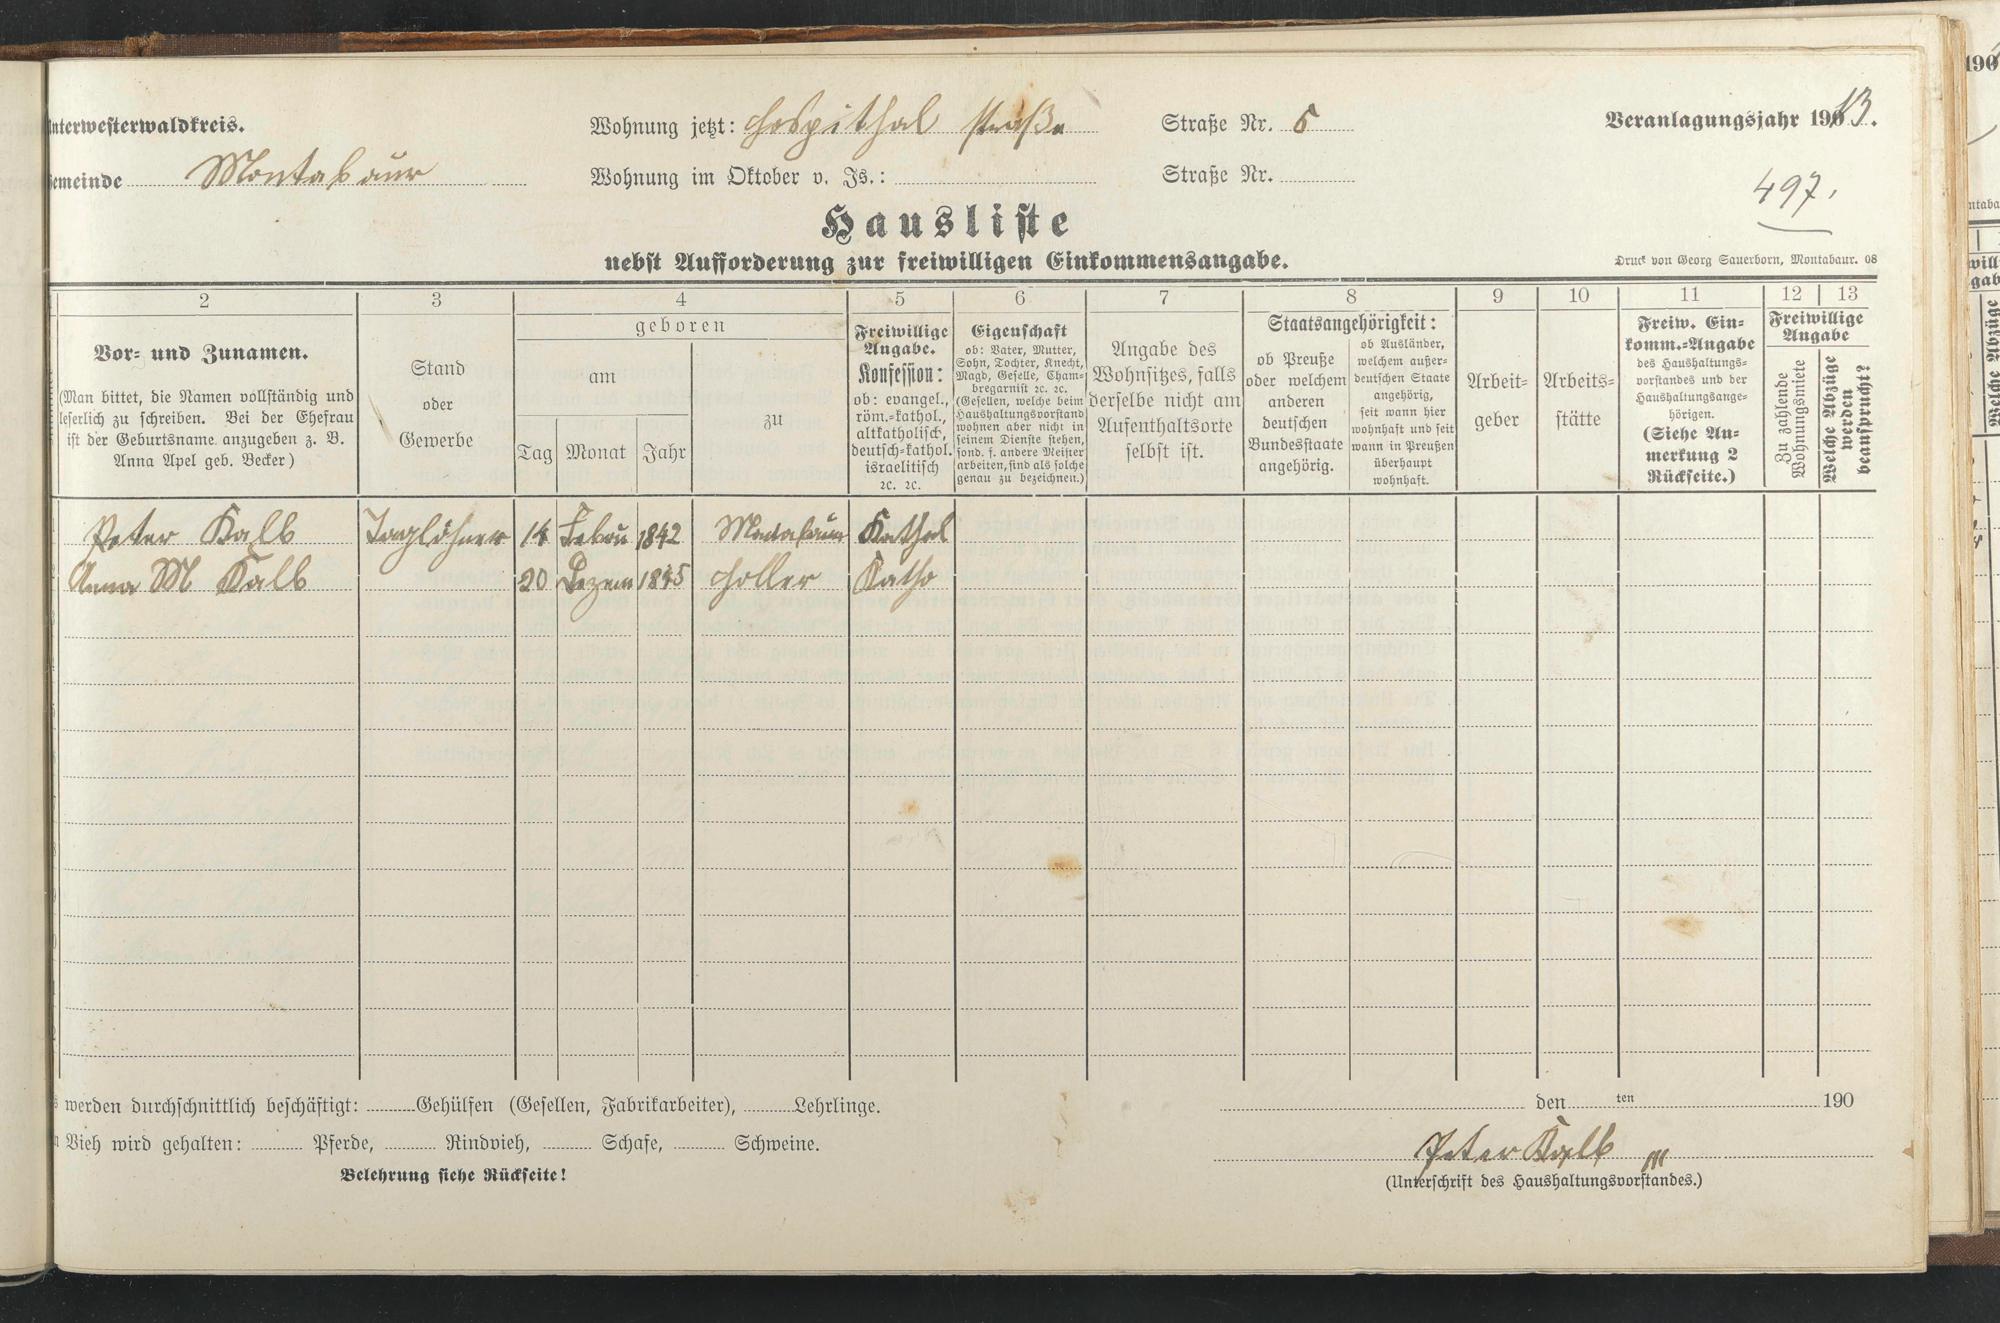 nterwesterwaldkreis.
Wohnung jetzt: Hospithal straße Straße Nr. 5
Veranlagungsjahr 1913.
emeinde Montabaur
Wohnung im Oktober v. Js.: Straße Nr.
497.
Hausliste
nebst Aufforderung zur freiwilligen Einkommensangabe.
Druck von Georg Sauerborn, Montabaur. 08
2 3 4 5 6 7 8 9 10 11 12 13
Vor- und Zunamen.
(Man bittet, die Namen vollständig und
leserlich zu schreiben. Bei der Ehefrau
ist der Geburtsname anzugeben z. B.
Anna Apel geb. Becker)
Stand
oder
Gewerbe
geboren
am
zu
Tag Monat Jahr
Freiwillige
Angabe.
Konfession:
ob: evangel.,
röm.-kathol.,
altkatholisch,
deutsch-kathol.
israelitisch
ꝛc. ꝛc.
Eigenschaft
ob: Vater, Mutter,
Sohn, Tochter, Knecht,
Magd, Geselle, Cham-
bregarnist ꝛc. ꝛc.
(Gesellen, welche beim
Haushaltungsvorstand
wohnen aber nicht in
seinem Dienste stehen,
sond. f. andere Meister
arbeiten, sind als solche
genau zu bezeichnen.)
Angabe des
Wohnsitzes, falls
derselbe nicht am
Aufenthaltsorte
selbst ist.
Staatsangehörigkeit:
ob Preuße
oder welchem
anderen
deutschen
Bundesstaate
angehörig.
ob Ausländer,
welchem außer-
deutschen Staate
angehörig,
seit wann hier
wohnhaft und seit
wann in Preußen
überhaupt
wohnhaft.
Arbeit-
geber
Arbeits-
stätte
Freiw. Ein-
komm.-Angabe
des Haushaltungs-
vorstandes und der
Haushaltungsange-
hörigen.
(Siehe An-
merkung 2
Rückseite.)
Freiwillige
Angabe
Zu zahlende
Wohnungsmiete
Welche Abzüge
werden
beansprucht?
Peter Kalb Taglöhner 14 Febru 1842 Montabaur Kathol
Anna M Kalb 20 Dezem 1845 Holler Katho
werden durchschnittlich beschäftigt: Gehülfen (Gesellen, Fabrikarbeiter), Lehrlinge.
den ten 190
Vieh wird gehalten: Pferde, Rindvieh, Schafe, Schweine.
Peter Kalb III
Belehrung siehe Rückseite!
(Unterschrift des Haushaltungsvorstandes.)